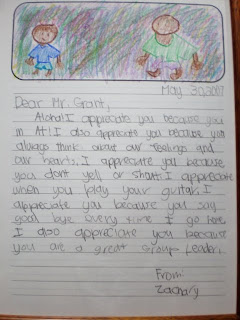 May 30, 2007
Dear Mr. Grant,
Aloha! I appreciate you because you
in A+! I also appreciate you because you
always think about our feelings and
our hearts. I appreciate you because
you don't yell or shout. I appreciate
when you play your guitar. I
appreciate you because you say
goal bye every time I go here
I also appreciate you because
you are a great group leader.
From:
Zachary